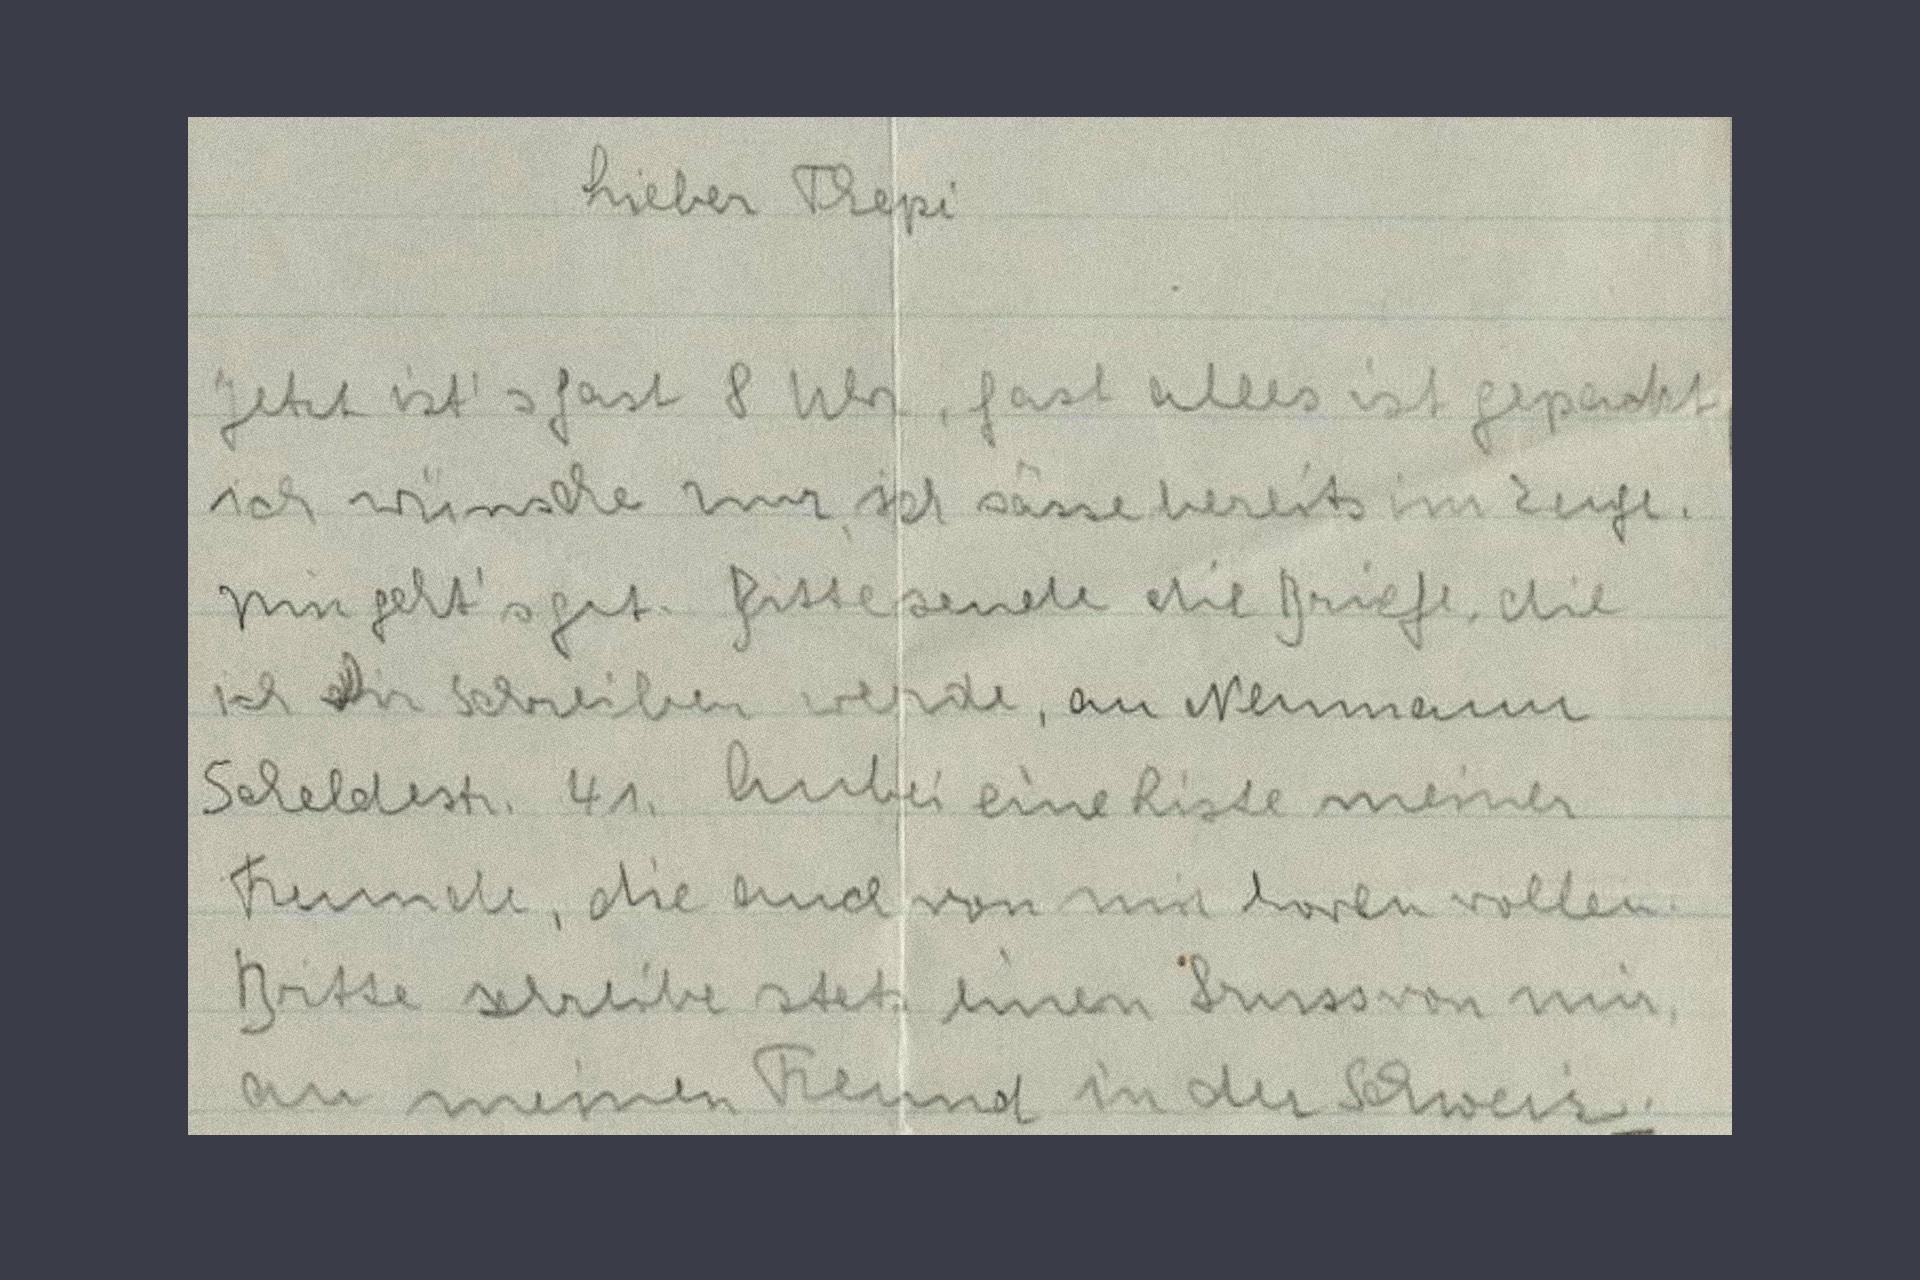 Lieber Thepi
Jetzt ist's fast 8 Uhr, fast alles ist gepackt,
ich wünsche nur, ich sässe bereits im Zuge.
Mir geht's gut. Bitte sende die Briefe, die
ich Dir schreiben werde, an Neumann
Scheldestr. 41. Anbei eine Liste meiner
Freunde, die auch von mir horen wollen.
Bitte schreibe stets einen Gruss von mir,
an meinen Freund in der Schweiz.